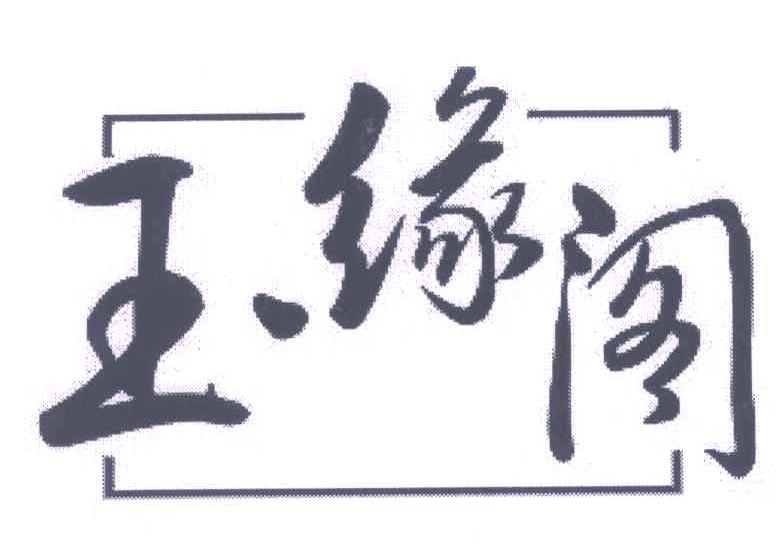 玉缘阁